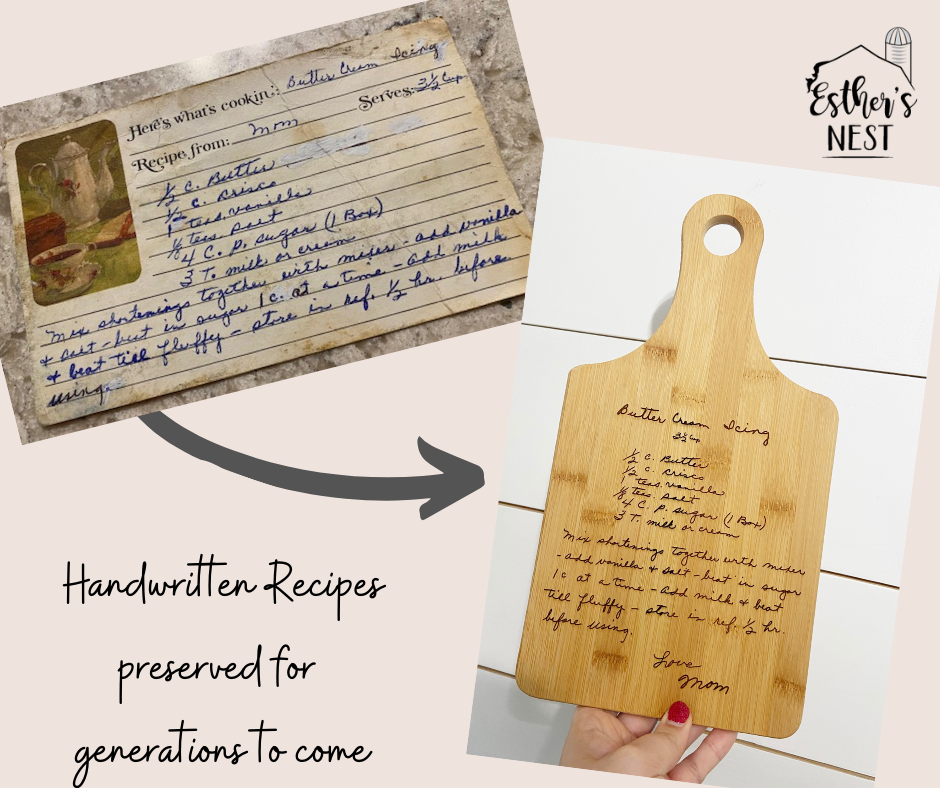 Here's what's cookin': Butter Cream Icing
Recipe from: Mom Serves: 3½ Cup
½ C. Butter
½ C. Crisco
1 teas. vanilla
⅛ teas. salt
4 C. P. sugar (1 Box)
3 T. milk or cream
Mix shortenings together with mixer - add vanilla
& salt - beat in sugar 1 c. at a time - add milk
& beat till fluffy - store in ref. ½ hr. before
using.
Esther's
NEST
Butter Cream Icing
3½ Cup
½ C. Butter
½ C. Crisco
1 teas. vanilla
⅛ teas. salt
4 C. P. sugar (1 Box)
3 T. milk or cream
Mix shortenings together with mixer
- add vanilla & salt - beat in sugar
1 c at a time - add milk & beat
till fluffy - store in ref. ½ hr.
before using.
Love
Mom
Handwritten Recipes
preserved for
generations to come